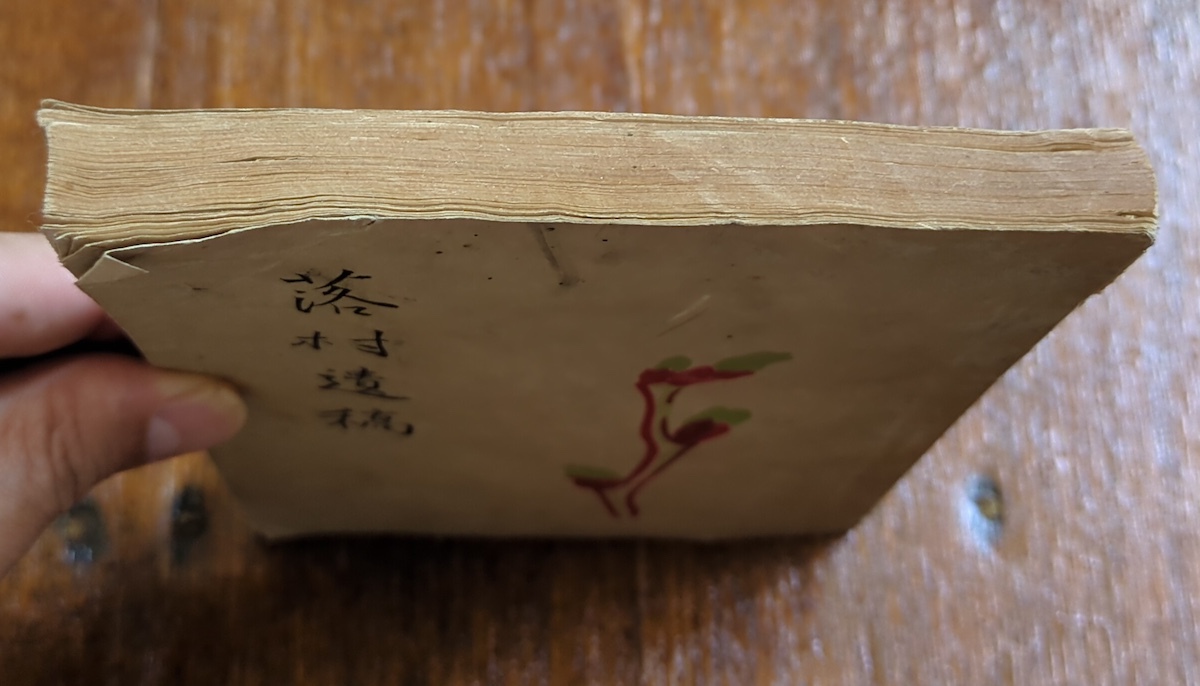 落村遺稿